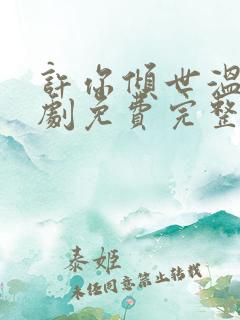 許你傾世溫
劇免費完整
泰姬
未任同意禁止转载